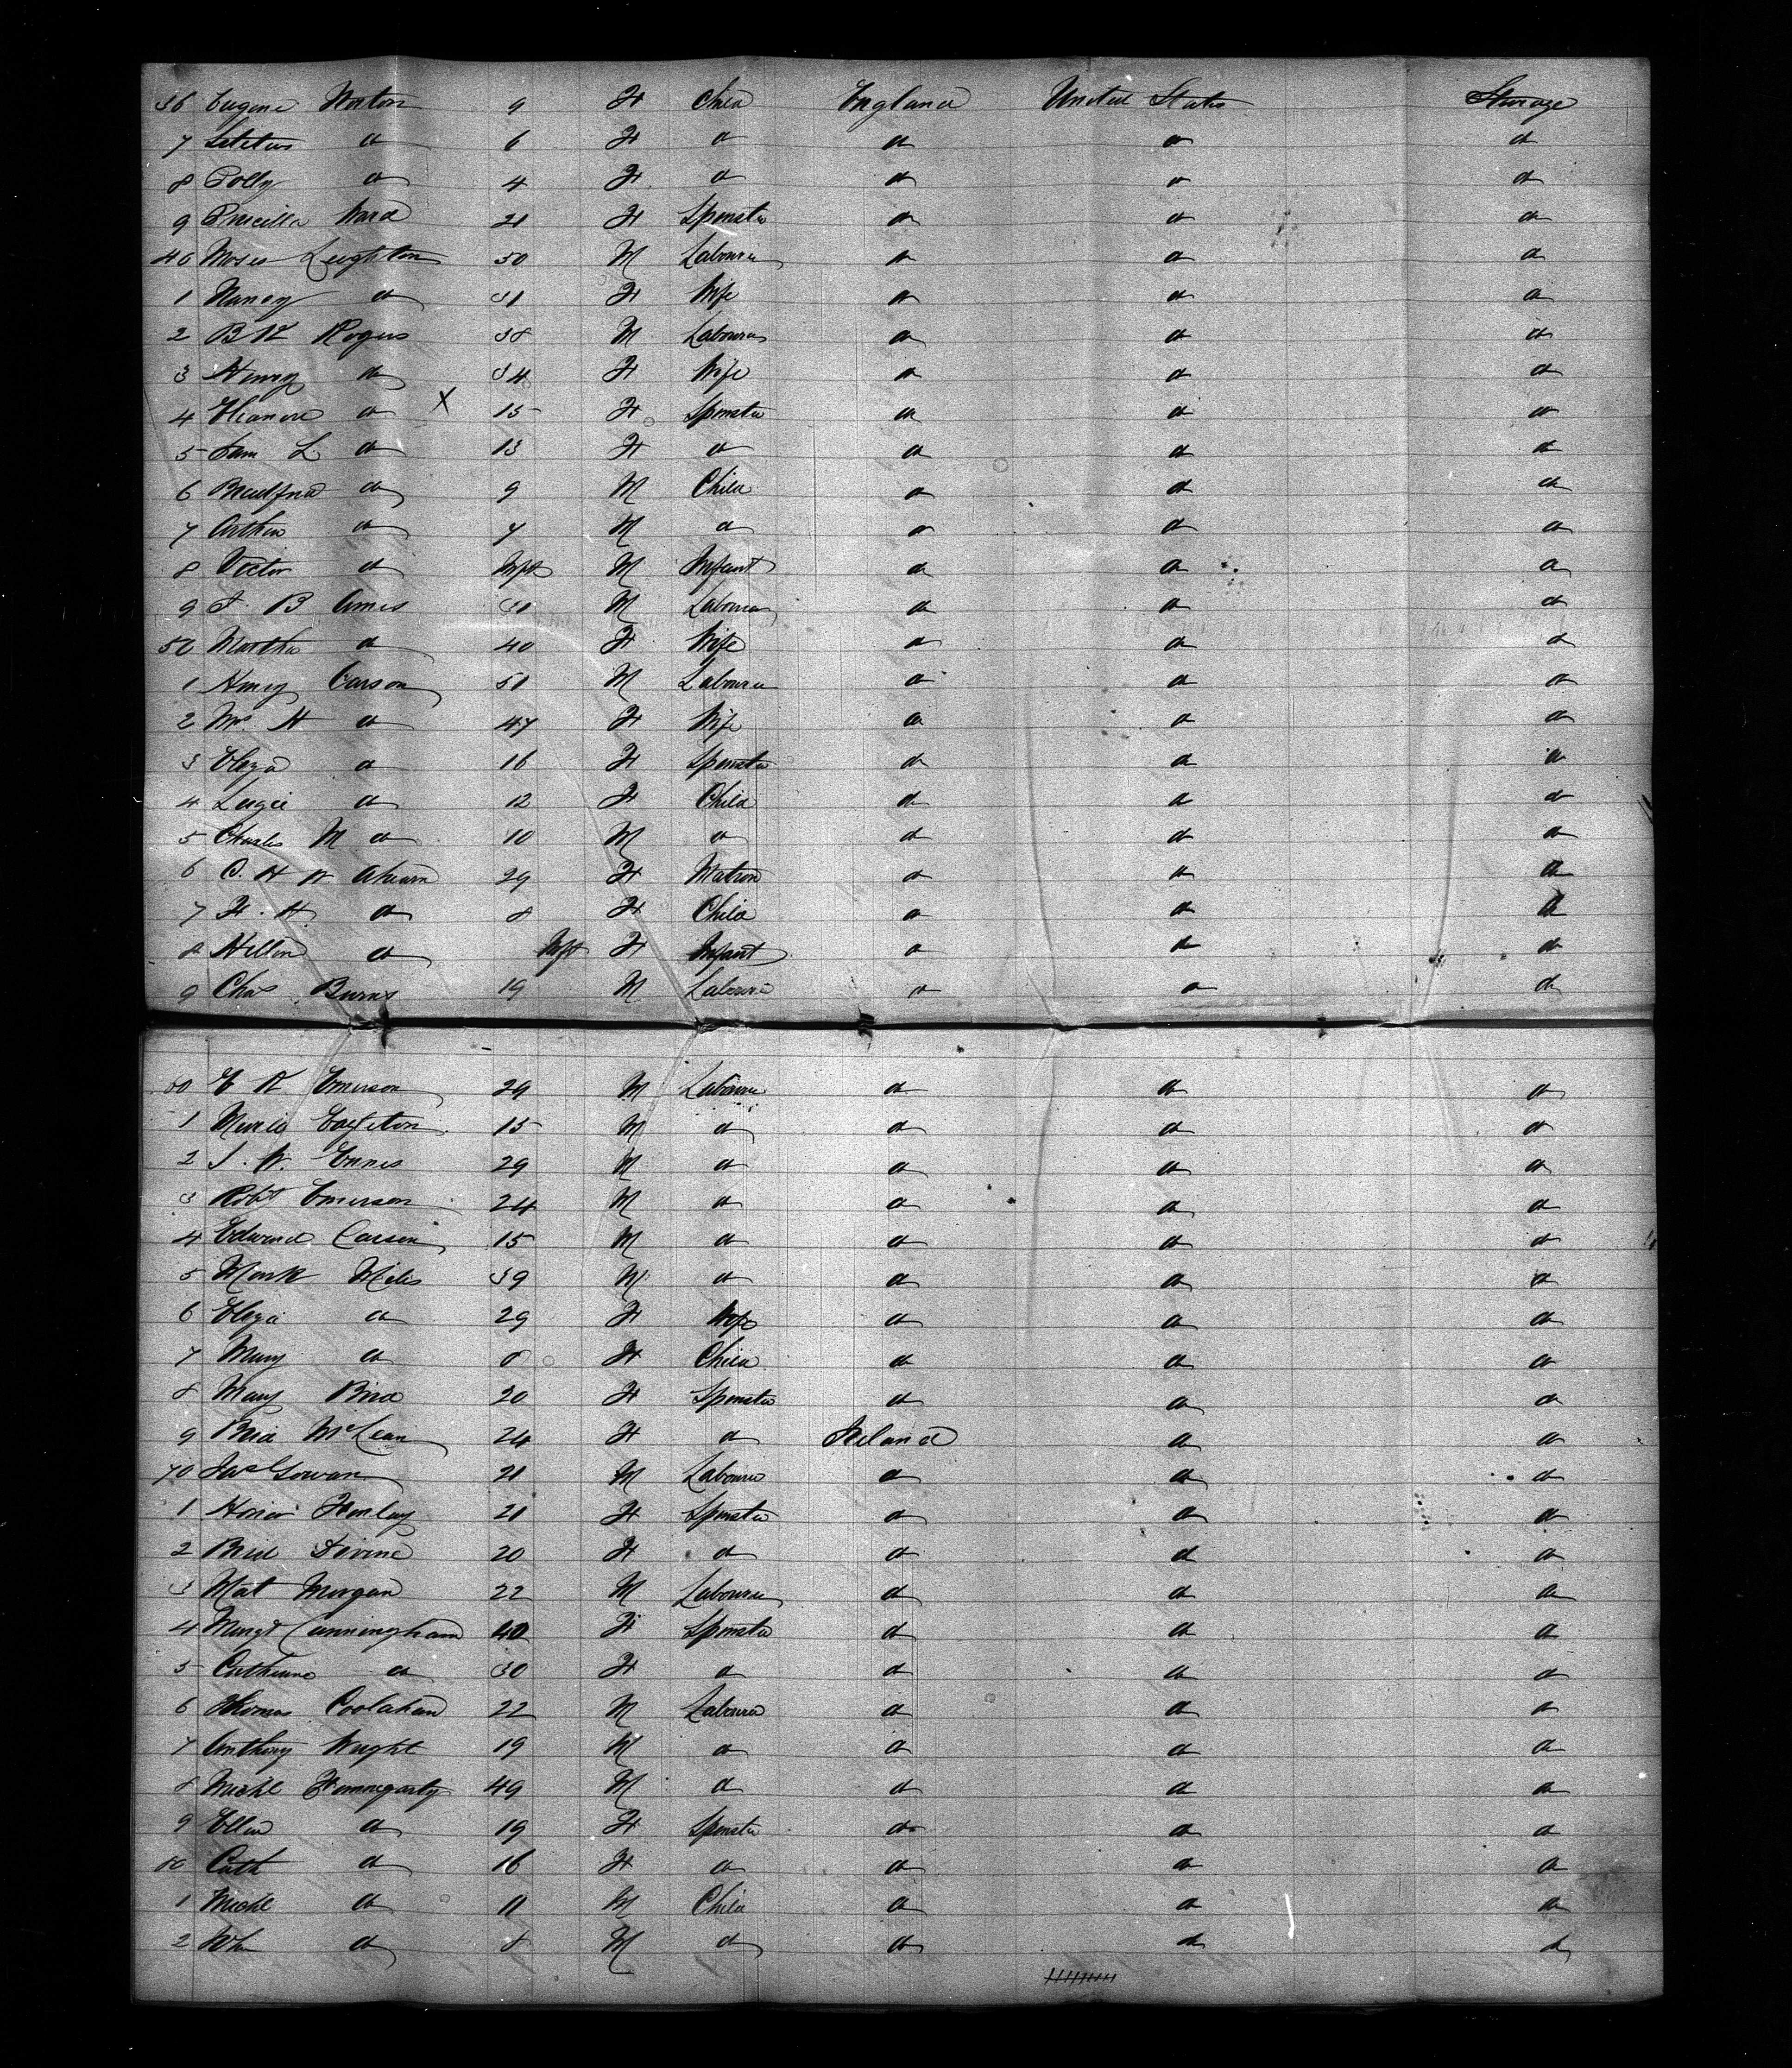 36 Eugene Norton 9 F Child England United States Steerage
7 Letitus do 6 F do do do do
8 Polly do 4 F do do do do
9 Priscilla Ward 21 F Spinster do do do
40 Moses Leighton 50 M Labourer do do do
1 Nancy do 31 F Wife do do do
2 Rogers 38 M Labourer do do do
3 Henry do 34 F Wife do do do
4 Eleanore do X 15 F Spinster do do do
5 L do 13 F do do do do
6 Bradford do 9 M Child do do do
7 Arthur do 7 M do do do do
8 Victor do Inft M Infant do do do
9 B Ames M Labourer do do do
50 Martha do 40 F Wife do do do
1 Henry Carson 51 M Labourer do do do
2 Mrs H do 47 F Wife do do do
3 Eliza do 16 F Spinster do do do
4 Lizzie do 12 F Child do do do
5 Charles M do 10 M do do do do
6 C. H W Ahearn 29 F Matron do do do
7 F. H. do 8 F Child do do do
8 Hellen do Inft F Infant do do do
9 Chas Burns 19 M Labourer do do do
60 E R Emerson 29 M Labourer do do do
1 15 M do do do do
2 J. W. Ennis 29 M do do do do
3 Robt Emerson 24 M do do do do
4 Edward Carson 15 M do do do do
5 Mark Miles 39 M do do do do
6 Eliza do 29 F Wife do do do
7 Mary do 8 F Child do do do
8 Mary Bird 20 F Spinster do do do
9 Brid McLean 24 F do Ireland do do
70 Jas Gowan 21 M Labourer do do do
1 Honor Henley 21 F Spinster do do do
2 Brid Devine 20 F do do do do
3 Mat Morgan 22 M Labourer do do do
4 Margt Cunningham 40 F Spinster do do do
5 Catherine do 30 F do do do do
6 Thomas Coolahan 22 M Labourer do do do
7 Anthony Wright 19 M do do do do
8 Michl Fennegarty 49 M do do do do
9 Ellen do 19 F Spinster do do do
80 Cath do 16 F do do do do
1 Michl do 11 M Child do do do
2 Wm do 8 M do do do do